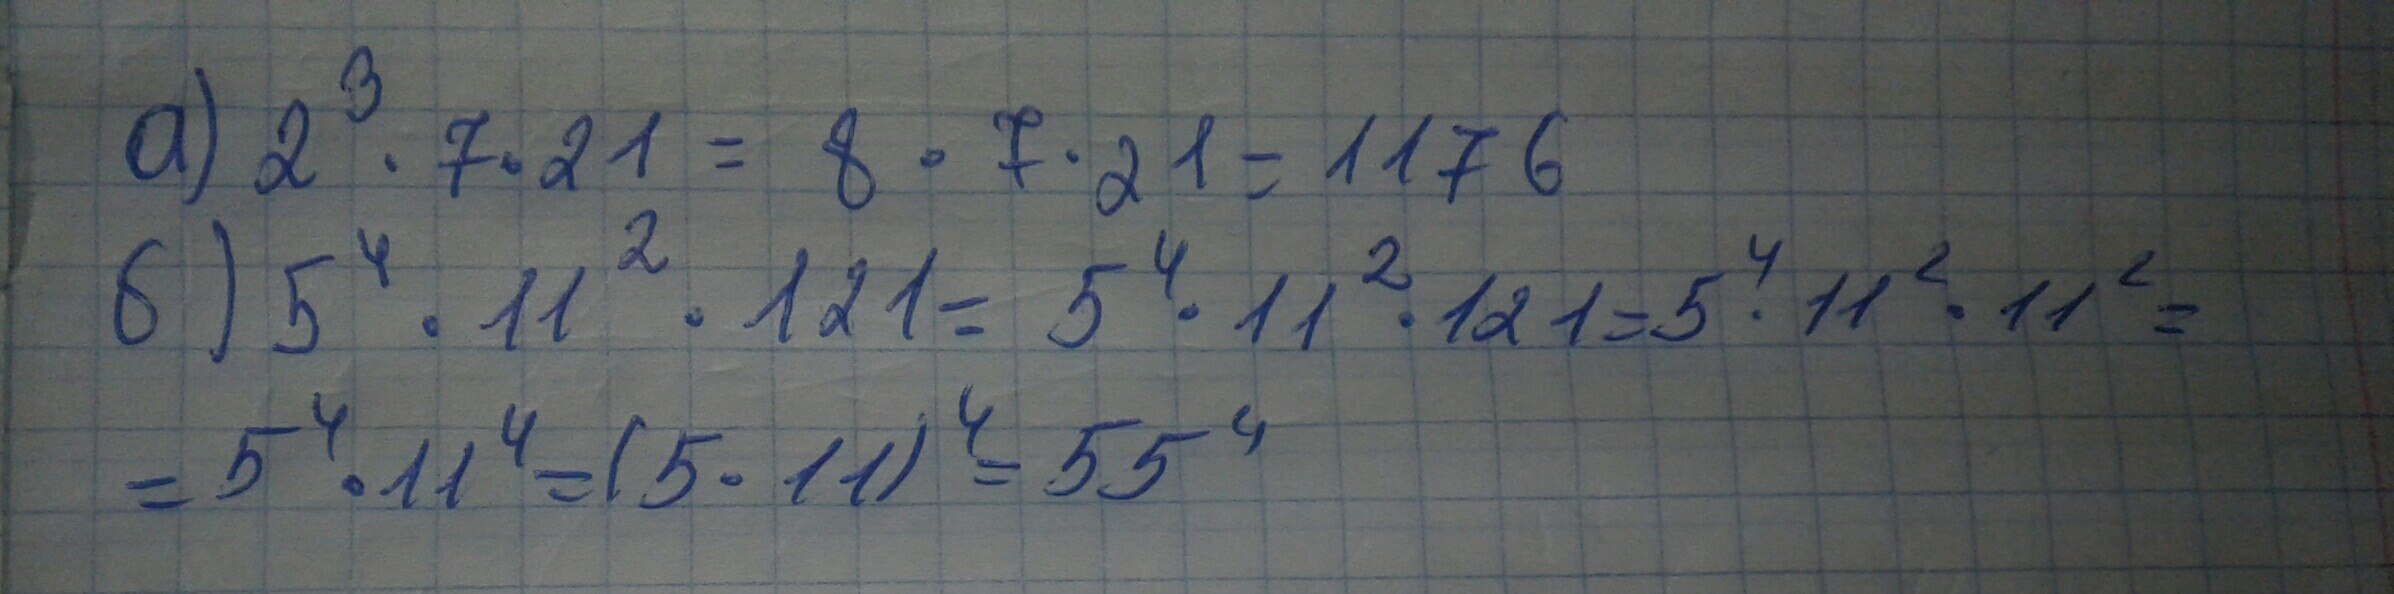 а) 2³ · 7 · 21 = 8 · 7 · 21 = 1176
б) 5⁴ · 11² · 121 = 5⁴ · 11² · 121 = 5⁴ · 11² · 11² =
= 5⁴ · 11⁴ = (5 · 11)⁴ = 55⁴